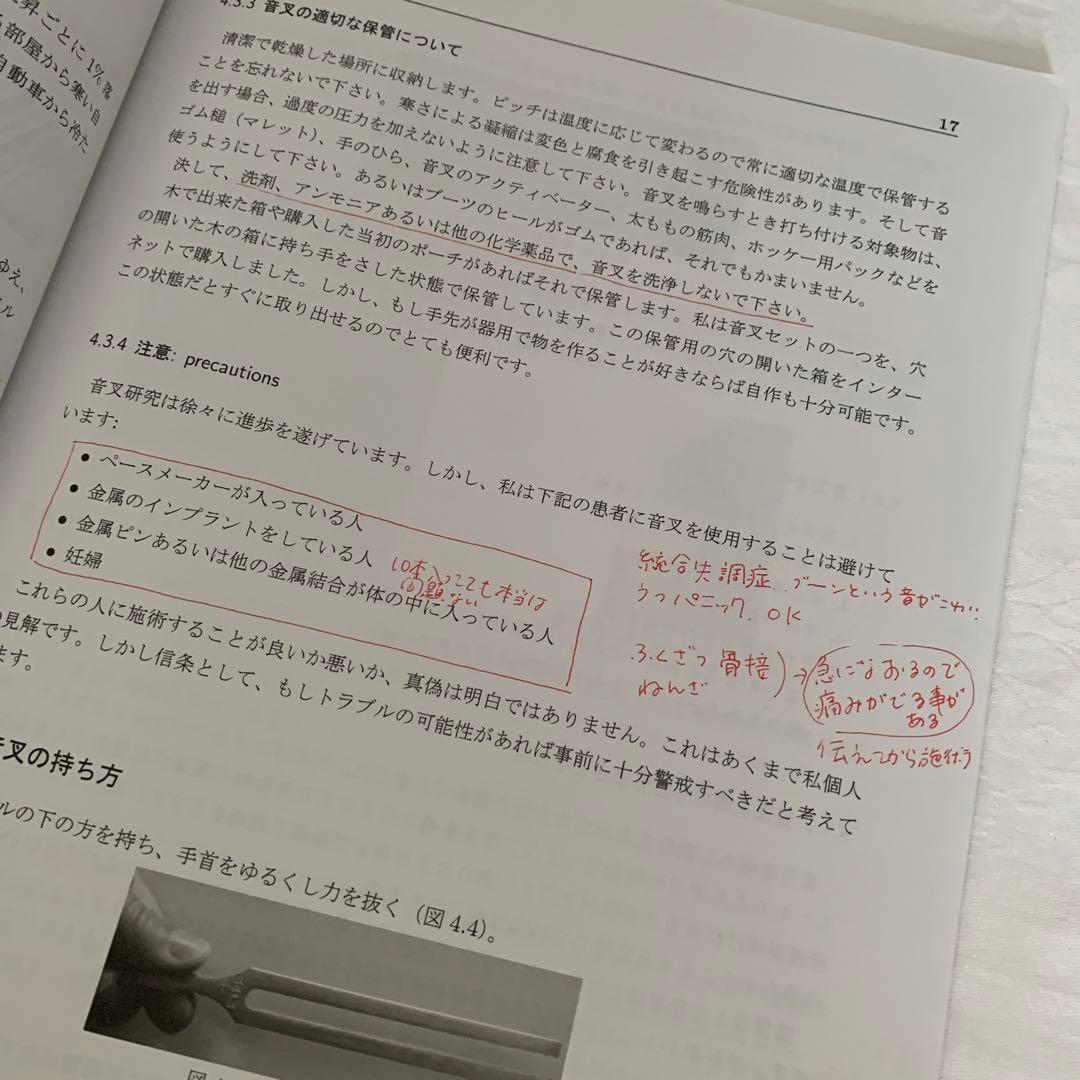 昇ごとに 1% 落
部屋から寒い自
自動車から冷た
ゆえ、
4.3.3 音叉の適切な保管について
17
清潔で乾燥した場所に収納します。ピッチは温度に応じて変わるので常に適切な温度で保管する
ことを忘れないで下さい。寒さによる凝縮は変色と腐食を引き起こす危険性があります。そして音
を出す場合、過度の圧力を加えないように注意して下さい。音叉を鳴らすとき打ち付ける対象物は、
ゴム槌（マレット）、手のひら、音叉のアクティベーター、太ももの筋肉、ホッケー用パックなどを
使うようにして下さい。あるいはブーツのヒールがゴムであれば、それでもかまいません。
決して、洗剤、アンモニアあるいは他の化学薬品で、音叉を洗浄しないで下さい。
木で出来た箱や購入した当初のポーチがあればそれで保管します。私は音叉セットの一つを、穴
の開いた木の箱に持ち手をさした状態で保管しています。この保管用の穴の開いた箱をインター
ネットで購入しました。しかし、もし手先が器用で物を作ることが好きならば自作も十分可能です。
この状態だとすぐに取り出せるのでとても便利です。
4.3.4 注意: precautions
音叉研究は徐々に進歩を遂げています。しかし、私は下記の患者に音叉を使用することは避けて
います:
• ペースメーカーが入っている人
• 金属のインプラントをしている人
• 金属ピンあるいは他の金属結合が体の中に入っている人
• 妊婦
10本入ってても本当は
問題ない
統合失調症..ブーンという音がこわい
うつパニック. OK
ふくざつ骨接
ねんざ
→ 急になおるので
痛みがでる事が
ある
伝えてから施術う
これらの人に施術することが良いか悪いか、真偽は明白ではありません。これはあくまで私個人
の見解です。しかし信条として、もしトラブルの可能性があれば事前に十分警戒すべきだと考えて
ます。
音叉の持ち方
ルの下の方を持ち、手首をゆるくし力を抜く（図 4.4）。